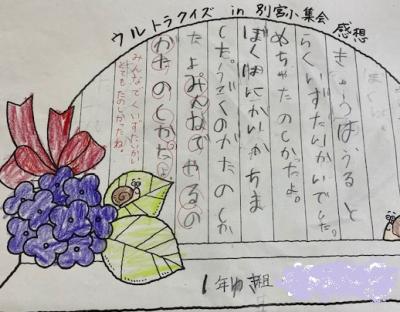 ウルトラクイズ in 別宮小集会 感想
きょうはうると
らくいずたいかいでした。
めちゃたのしかったよ。
ぼくは にかいかちま
した。うごくのがたのしか
たよ みんなでやるの
がたのしかたよ。
みんなでくいずたいかい
とてもたのしかったね。
1年ゆき組